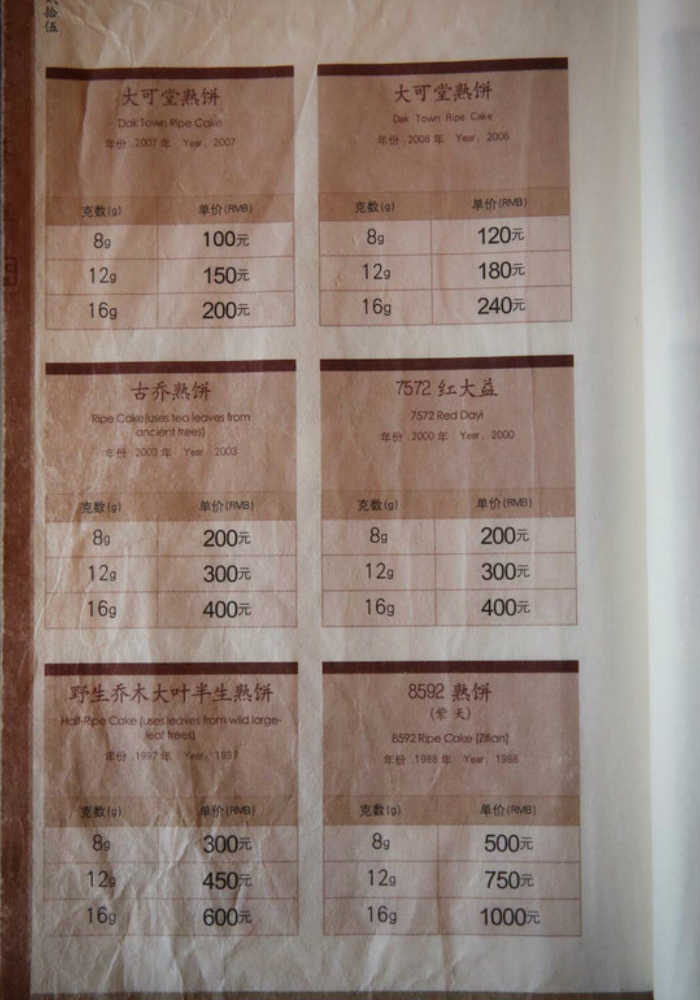 拾
伍
大可堂熟饼
Dak Town Ripe Cake
年份 .2007 年 Year. 2007
克数(g) 单价(RMB)
8g 100元
12g 150元
16g 200元
大可堂熟饼
Dak Town Ripe Cake
年份 .2006 年 Year. 2006
克数(g) 单价(RMB)
8g 120元
12g 180元
16g 240元
古乔熟饼
Ripe Cake(uses tea leaves from
ancient trees)
年份 .2003 年 Year. 2003
克数(g) 单价(RMB)
8g 200元
12g 300元
16g 400元
7572 红大益
7572 Red Dayi
年份 .2000 年 Year. 2000
克数(g) 单价(RMB)
8g 200元
12g 300元
16g 400元
野生乔木大叶半生熟饼
Half-Ripe Cake (uses leaves from wild large-
leaf trees)
年份 .1997 年 Year. 1997
克数(g) 单价(RMB)
8g 300元
12g 450元
16g 600元
8592 熟饼
(紫 天)
8592 Ripe Cake (Zitian)
年份 .1988 年 Year. 1988
克数(g) 单价(RMB)
8g 500元
12g 750元
16g 1000元